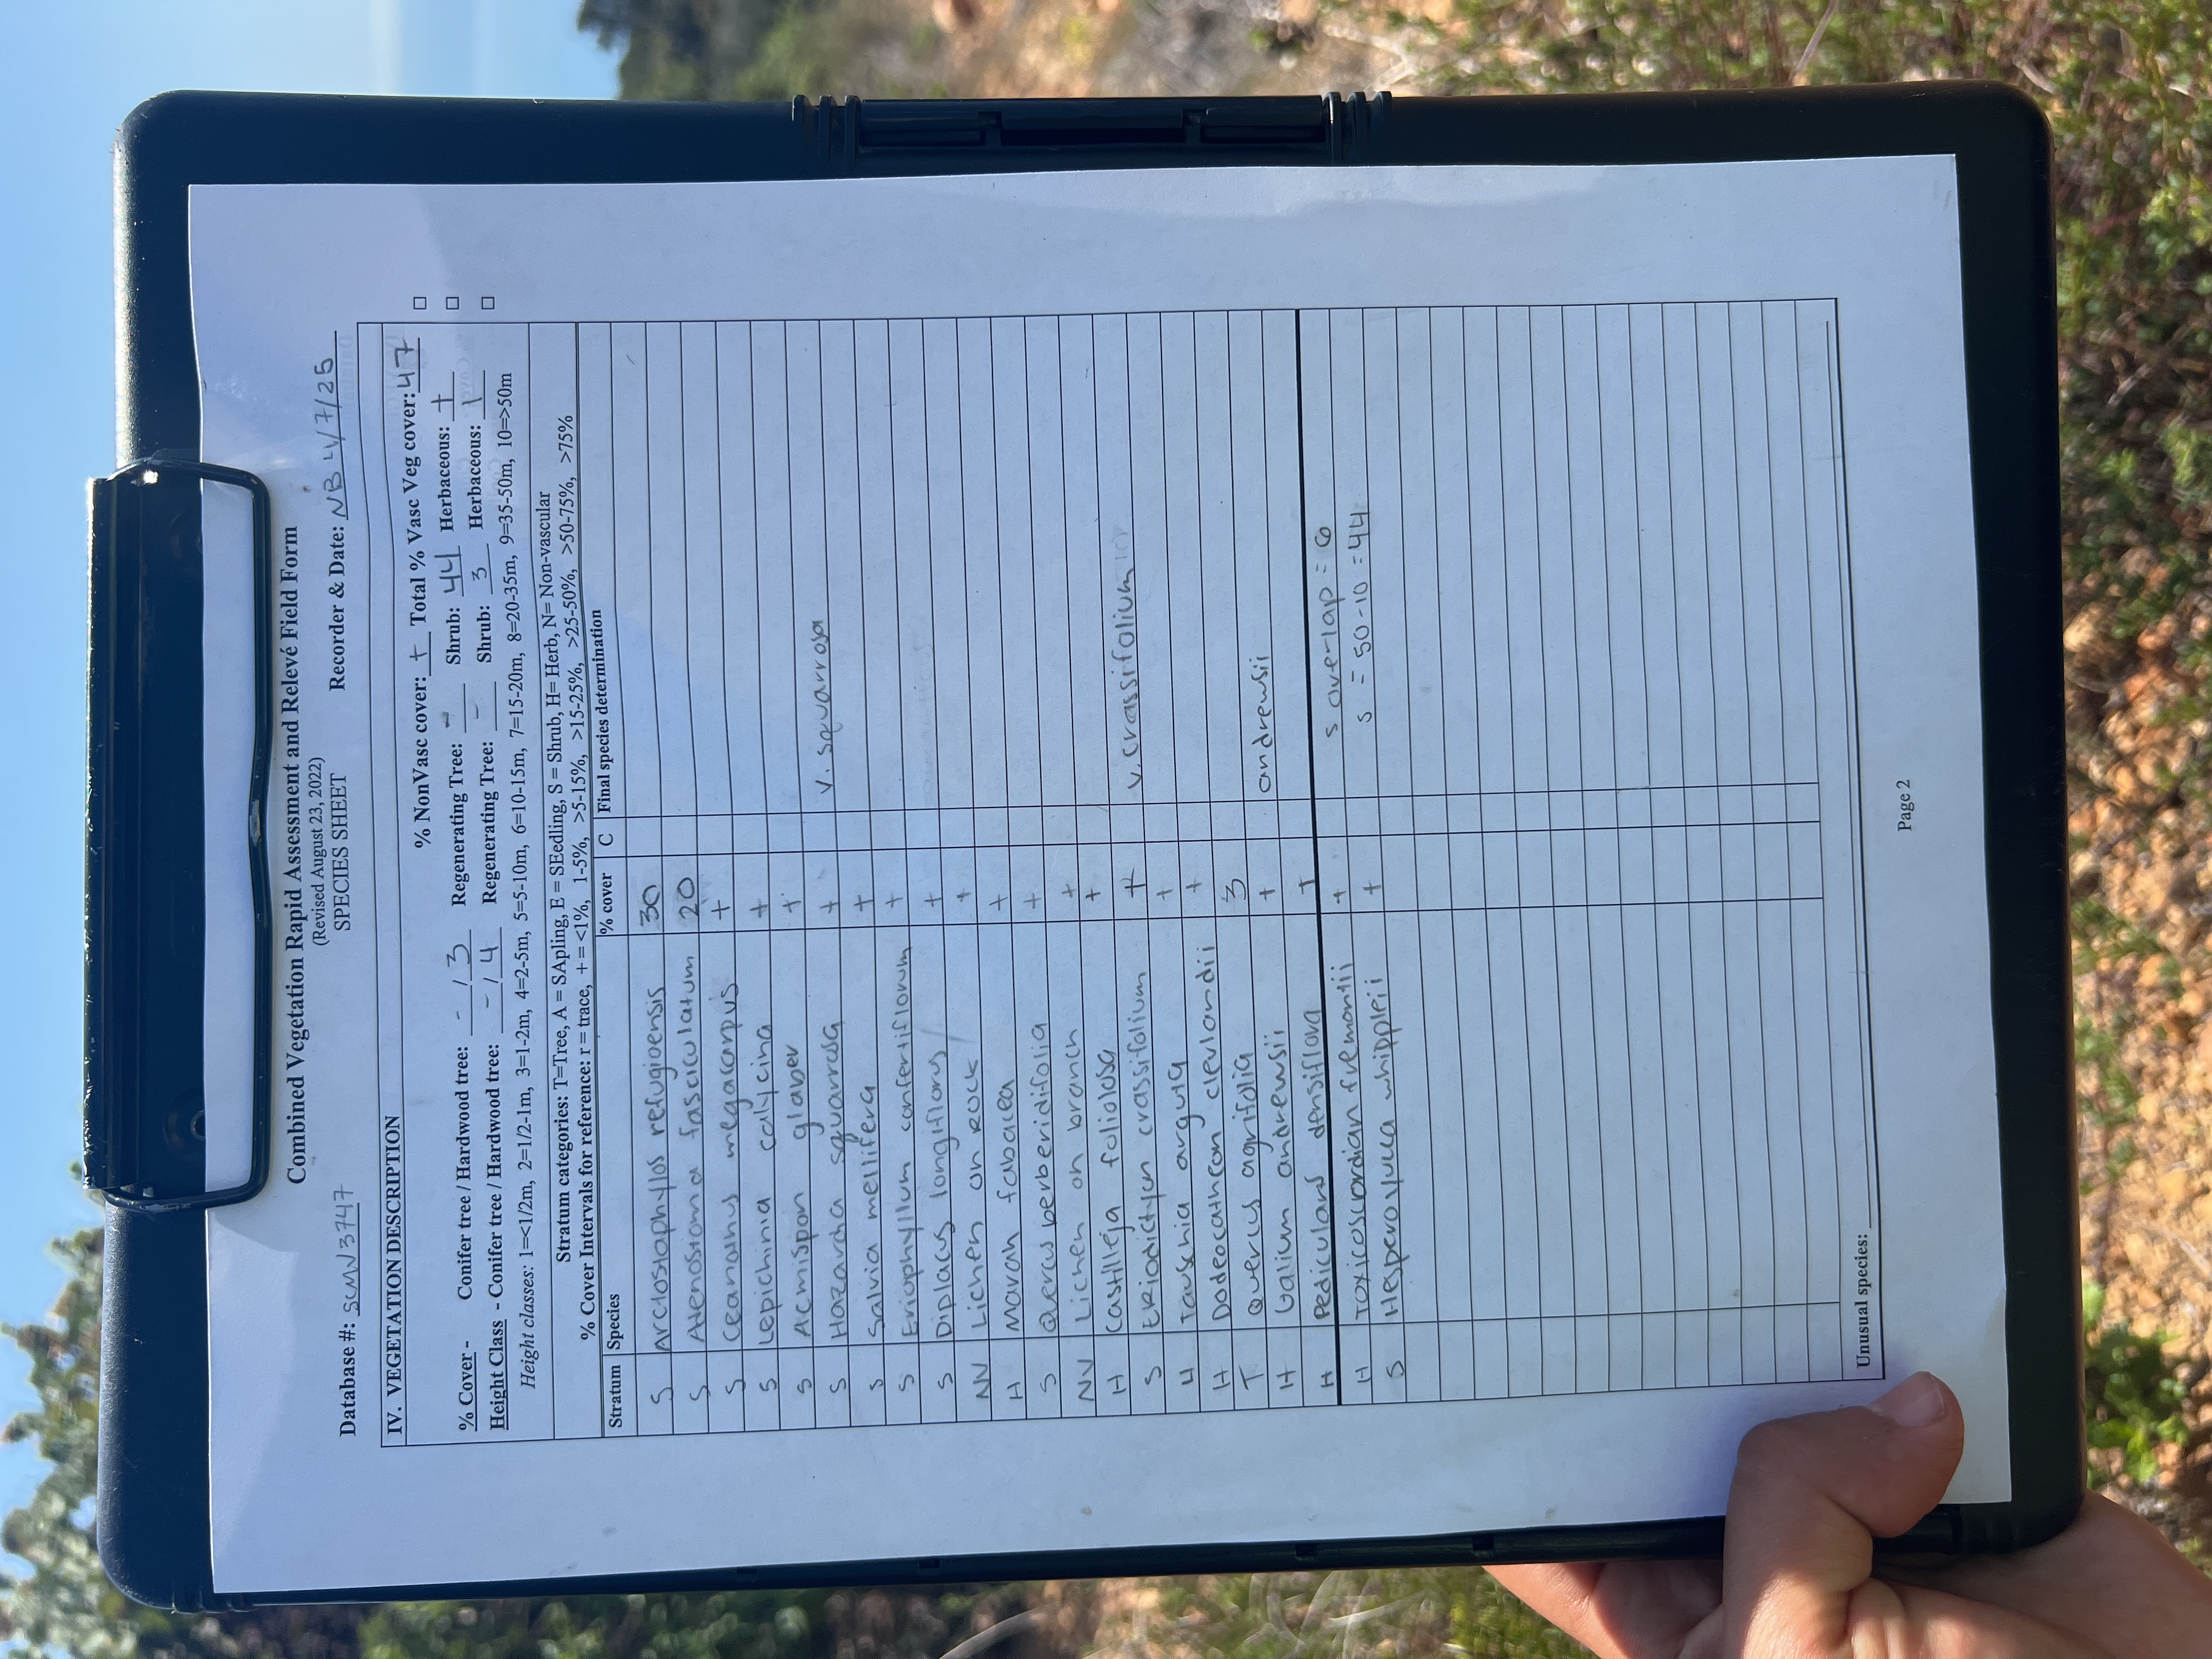 Combined Vegetation Rapid Assessment and Relevé Field Form
(Revised August 23, 2022)
SPECIES SHEET
Database #: SCMV3747 Recorder & Date: NB 4/7/25
IV. VEGETATION DESCRIPTION
% NonVasc cover: + Total % Vasc Veg cover: 47 □
% Cover - Conifer tree / Hardwood tree: - / 3 Regenerating Tree: - Shrub: 44 Herbaceous: + □
Height Class - Conifer tree / Hardwood tree: - / 4 Regenerating Tree: - Shrub: 3 Herbaceous: 1 □
Height classes: 1=<1/2m, 2=1/2-1m, 3=1-2m, 4=2-5m, 5=5-10m, 6=10-15m, 7=15-20m, 8=20-35m, 9=35-50m, 10=>50m
Stratum categories: T=Tree, A = SApling, E = SEedling, S = Shrub, H= Herb, N= Non-vascular
% Cover Intervals for reference: r = trace, + = <1%, 1-5%, >5-15%, >15-25%, >25-50%, >50-75%, >75%
Stratum Species % cover C Final species determination
S Arctostaphylos refugioensis 30
S Adenostoma fasciculatum 20
S Ceanothus megacarpus +
S Lepichinia calycina +
S Acmispon glaber +
S Hazardia squarrosa + v. squarrosa
S Salvia mellifera +
S Eriophyllum confertiflorum +
S Diplacus longiflorus +
NV Lichen on rock +
H Marah fabacea +
S Quercus berberidifolia +
NV Lichen on branch +
H Castilleja foliolosa +
S Eriodictyon crassifolium v. crassifolium
H Tauschia arguta +
H Dodecatheon clevlandii +
T Quercus agrifolia 3
H Galium andrewsii + andrewsii
H Pedicularis densiflora +
H Toxicoscordian fremontii + S overlap = 6
S Hesperoyucca whipplei + S = 50-10 = 44
Unusual species:
Page 2